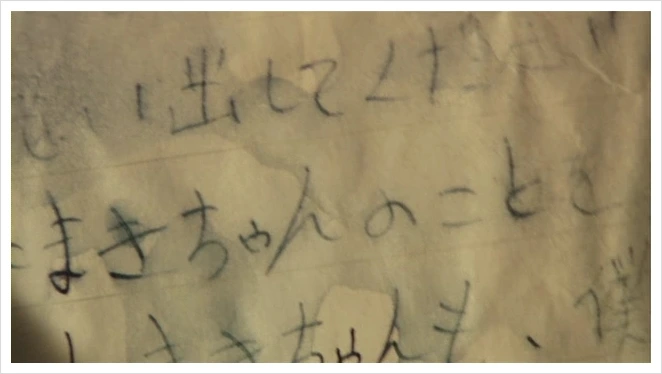 い出してください
まきちゃんのことを
まきちゃんも、僕